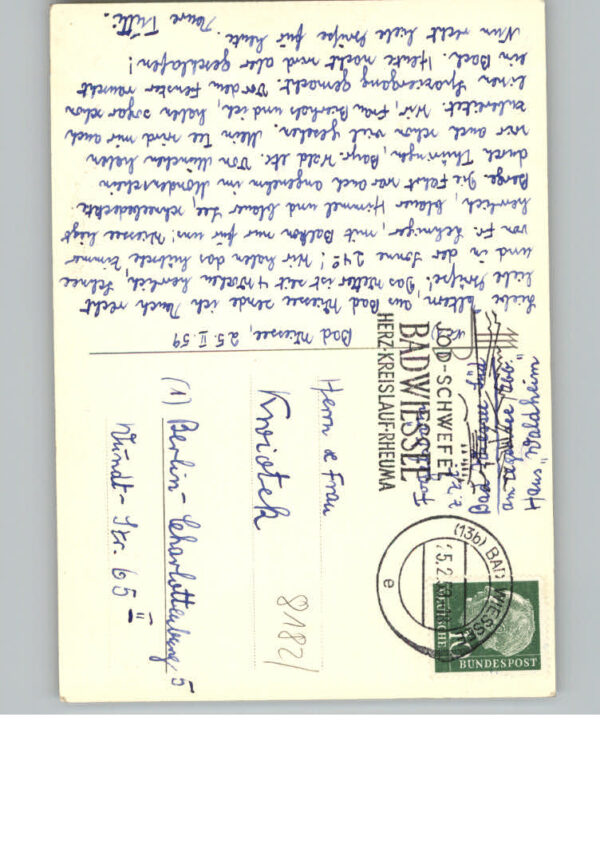 Bad Wiessee, 25.II.59
Liebe Eltern, aus Bad Wiessee sende ich Euch recht
liebe Grüße! Das Wetter ist seit 4 Wochen herrlich, Schnee
und in der Sonne 24°! Wir haben das hübsche Zimmer
von Fr. mit Balkon nur für uns! Wiessee liegt
herrlich, blauer Himmel und blauer See, schneebedeckte
Berge. Die Fahrt war auch angenehm im Mondenschein
durch Thüringen, Bayr. Wald etc. Von München haben
wir auch schon viel gesehen. Mein Tee wird mir auch
zubereitet. Wir, Frau und ich, haben sogar schon
einen Spaziergang gemacht. Vor dem Fenster rauscht
ein Bach. Heute nacht wird aber geschlafen!
Nun recht liebe Grüße für heute. Eure Tilli.
z. Zt.
Bad Wiessee
am Tegernsee
Haus "Waldheim"
JOD-SCHWEFEL
BAD WIESSEE
HERZ-KREISLAUF-RHEUMA
(13b) BAD WIESSEE
25.2.59
e
DEUTSCHE
BUNDESPOST
10
Herrn & Frau
Kwiotek
(1) Berlin-Charlottenburg 5
Wundt-Str. 65 II
8182/